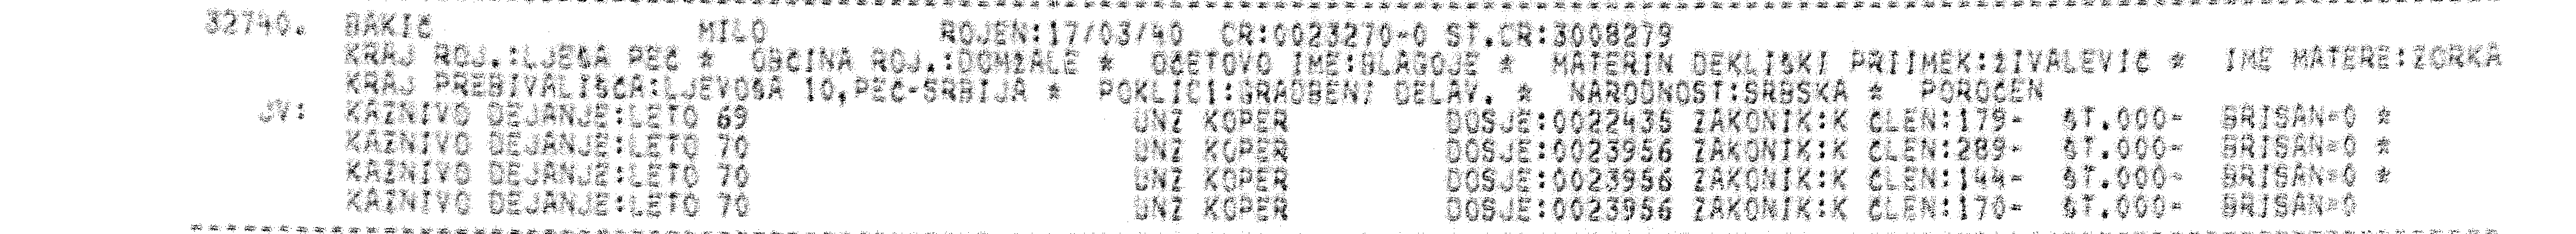 32740. BAKIČ MILO ROJEN:17/03/40 CR:0023270-0 ŠT.CR:3008279
KRAJ ROJ.:LJEŠA PEČ * OBČINA ROJ.:DOMŽALE * OČETOVO IME:BLAGOJE * MATERIN DEKLIŠKI PRIIMEK:ŽIVALEVIČ * IME MATERE:ZORKA
KRAJ PREBIVALIŠČA:LJEVOŠA 10,PEČ-SRBIJA * POKLIC1:GRADBENI DELAV. * NARODNOST:SRBSKA * POROČEN
JV: KAZNIVO DEJANJE:LETO 69 UNZ KOPER DOSJE:0022435 ZAKONIK:K ČLEN:179- ŠT.000- BRISAN=0 *
KAZNIVO DEJANJE:LETO 70 UNZ KOPER DOSJE:0023956 ZAKONIK:K ČLEN:289- ŠT.000- BRISAN=0 *
KAZNIVO DEJANJE:LETO 70 UNZ KOPER DOSJE:0023956 ZAKONIK:K ČLEN:144- ŠT.000- BRISAN=0 *
KAZNIVO DEJANJE:LETO 70 UNZ KOPER DOSJE:0023956 ZAKONIK:K ČLEN:170- ŠT.000- BRISAN=0